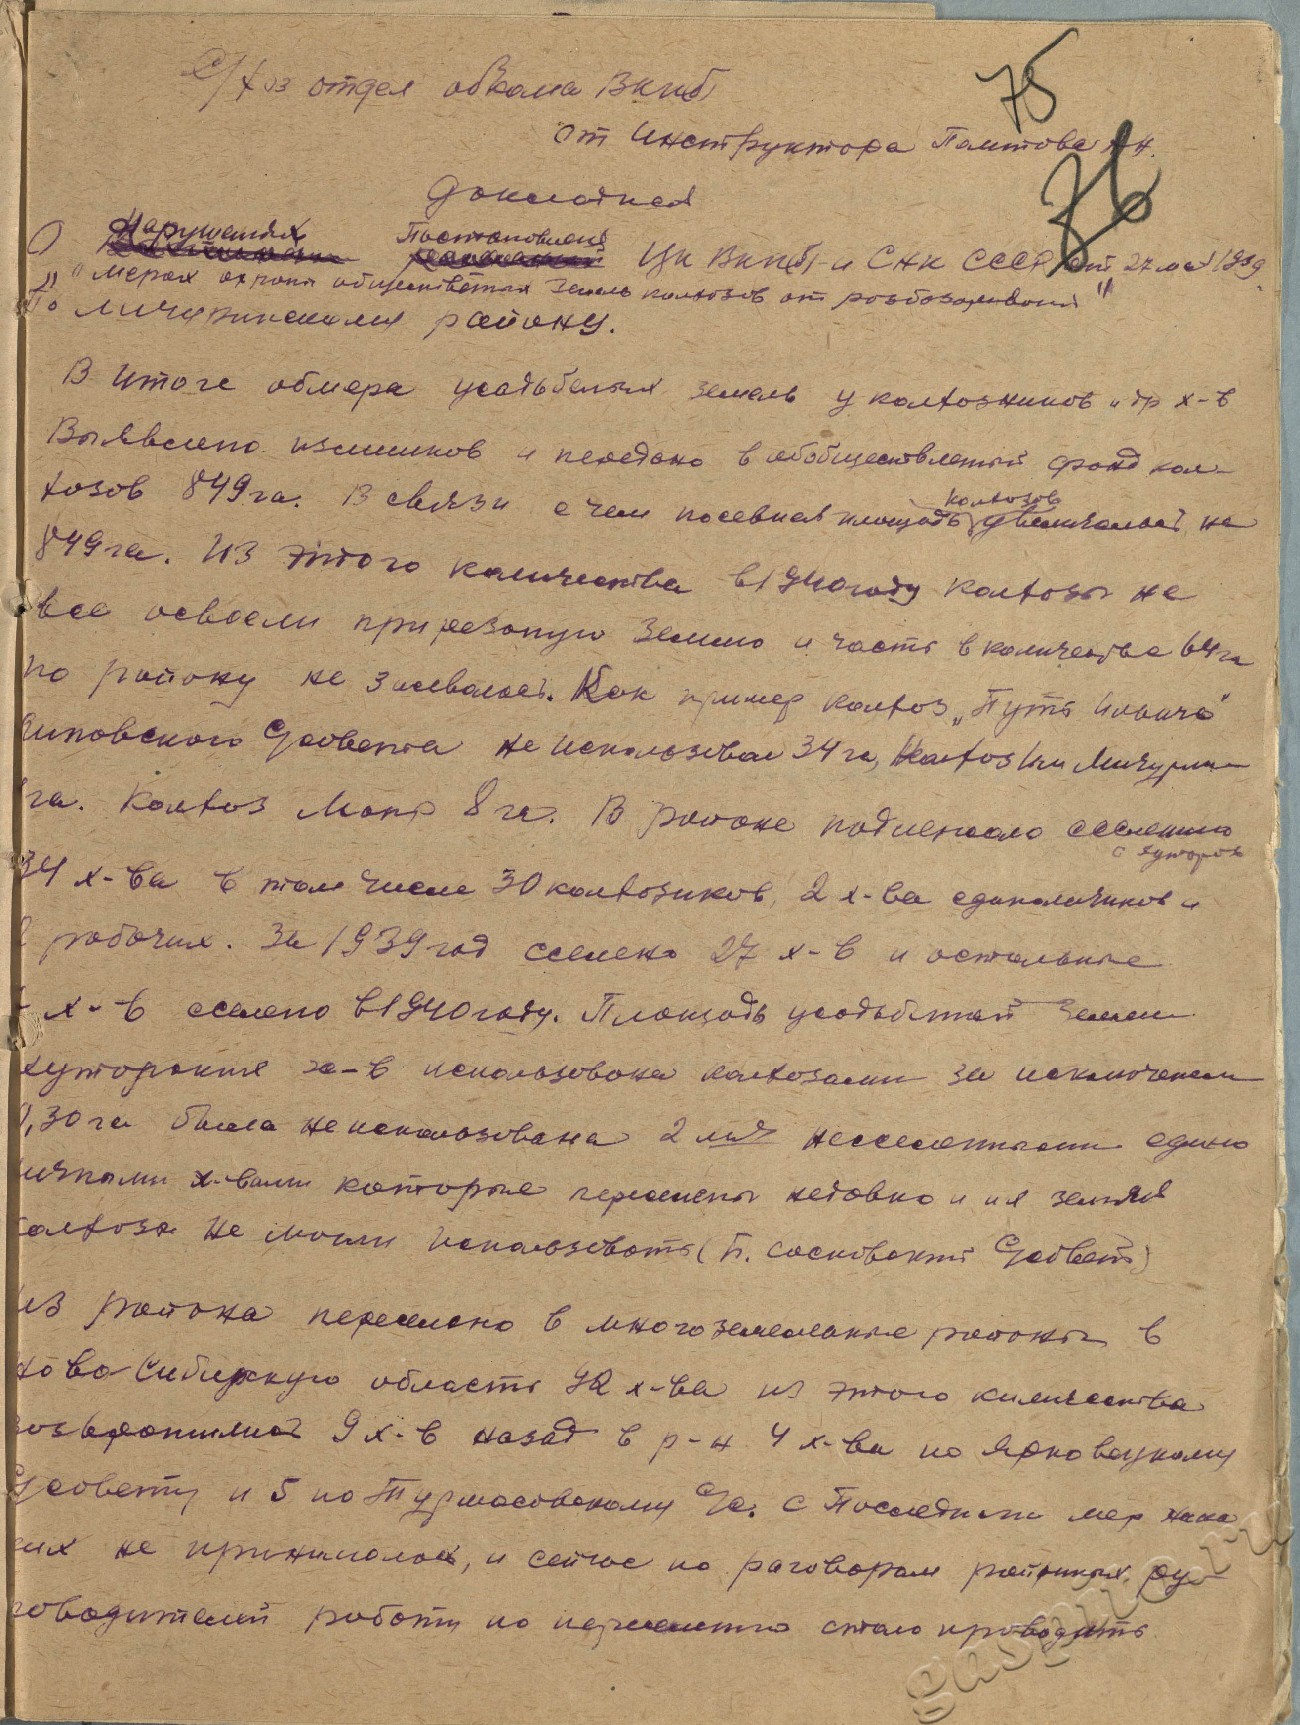 С/Хоз отдел обкома ВКПб
75
От Инструктора
76
Докладная
О Нарушениях Постановления ЦК ВКП(б) и СНК СССР от 27 мая 1939
"О мерах охраны общественных земель колхозов от разбазаривания"
По Мичуринскому району.
В итоге обмера усадебных земель у колхозников и др х-в
Выявлено излишков и передано в обобществленный фонд кол-
хозов 849 га. В связи с чем посевная площадь колхозов увеличилась на
849 га. Из этого количества в 1940 году колхозы не
все освоели прирезаную землю и часть в количестве 64 га
по району не засевалось. Как пример колхоз „Путь Ильича"
Сельсовета не использовал 34 га, Колхоз Им Мичурина
га. Колхоз Мопр 8 га. В районе подлежало сселению
с хуторов
34 х-ва в том числе 30 колхозников, 2 х-ва единоличников и
2 рабочих. За 1939 год сселено 27 х-в и остальные
х-в сселено в 1940 году. Площадь усадебной земли
хуторских х-в использована колхозами за исключением
0,30 га была не использована 2 мя несселенными едино
личными х-вами которые переселены недавно и их земля
колхоза не могли использовать (Б. Сосновский С/совет)
из района переселено в многоземельные районы в
Ново-Сибирскую область 92 х-ва из этого количества
возвратились 9 х-в назад в р-н 4 х-ва по
С/совету и 5 по Турмасовскому С/с. С Последними мер ника
ких не принималось, и сейчас по разговорам районных ру-
ководителей работу по переселению стало проводить
gaspito.ru